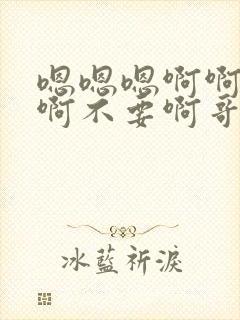 嗯嗯嗯啊啊
啊不要啊哥
冰藍祈淚